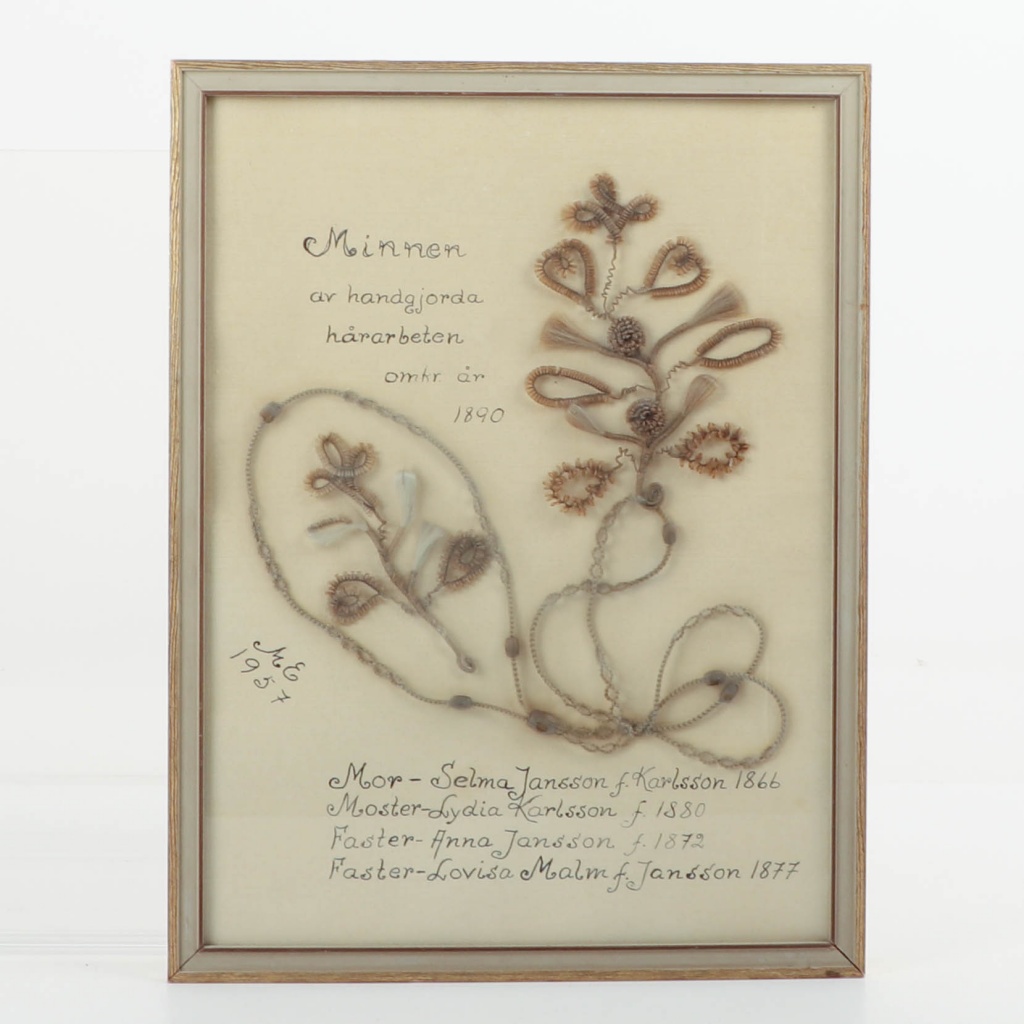 Minnen
av handgjorda
hårarbeten
omkr. år
1890
ME
1957
Mor - Selma Jansson f. Karlsson 1866
Moster - Lydia Karlsson f. 1880
Faster - Anna Jansson f. 1872
Faster - Lovisa Malm f. Jansson 1877